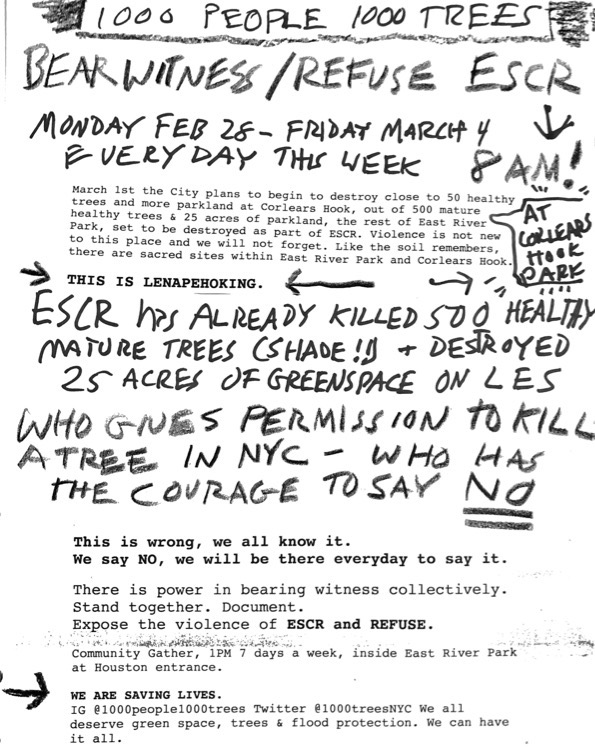 1000 PEOPLE 1000 TREES
BEAR WITNESS/REFUSE ESCR
MONDAY FEB 28 - FRIDAY MARCH 4
EVERY DAY THIS WEEK 8 AM!
March 1st the City plans to begin to destroy close to 50 healthy
trees and more parkland at Corlears Hook, out of 500 mature
healthy trees & 25 acres of parkland, the rest of East River
Park, set to be destroyed as part of ESCR. Violence is not new
to this place and we will not forget. Like the soil remembers,
there are sacred sites within East River Park and Corlears Hook.
AT
CORLEARS
HOOK
PARK
THIS IS LENAPEHOKING.
ESCR hAS ALREADY KILLED 500 HEALTHY
MATURE TREES (SHADE!!) + DESTROYED
25 ACRES OF GREENSPACE ON LES
WHO GIVES PERMISSION TO KILL
A TREE IN NYC - WHO HAS
THE COURAGE TO SAY NO
This is wrong, we all know it.
We say NO, we will be there everyday to say it.
There is power in bearing witness collectively.
Stand together. Document.
Expose the violence of ESCR and REFUSE.
Community Gather, 1PM 7 days a week, inside East River Park
at Houston entrance.
WE ARE SAVING LIVES.
IG @1000people1000trees Twitter @1000treesNYC We all
deserve green space, trees & flood protection. We can have
it all.